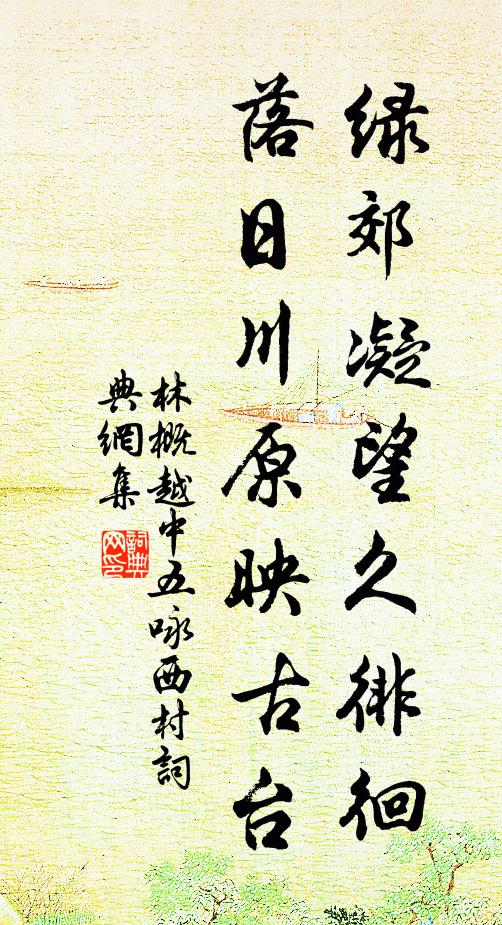 绿郊凝望久徘徊
落日川原映古台
林概越中五咏西村詞
典網集
詞典
网印